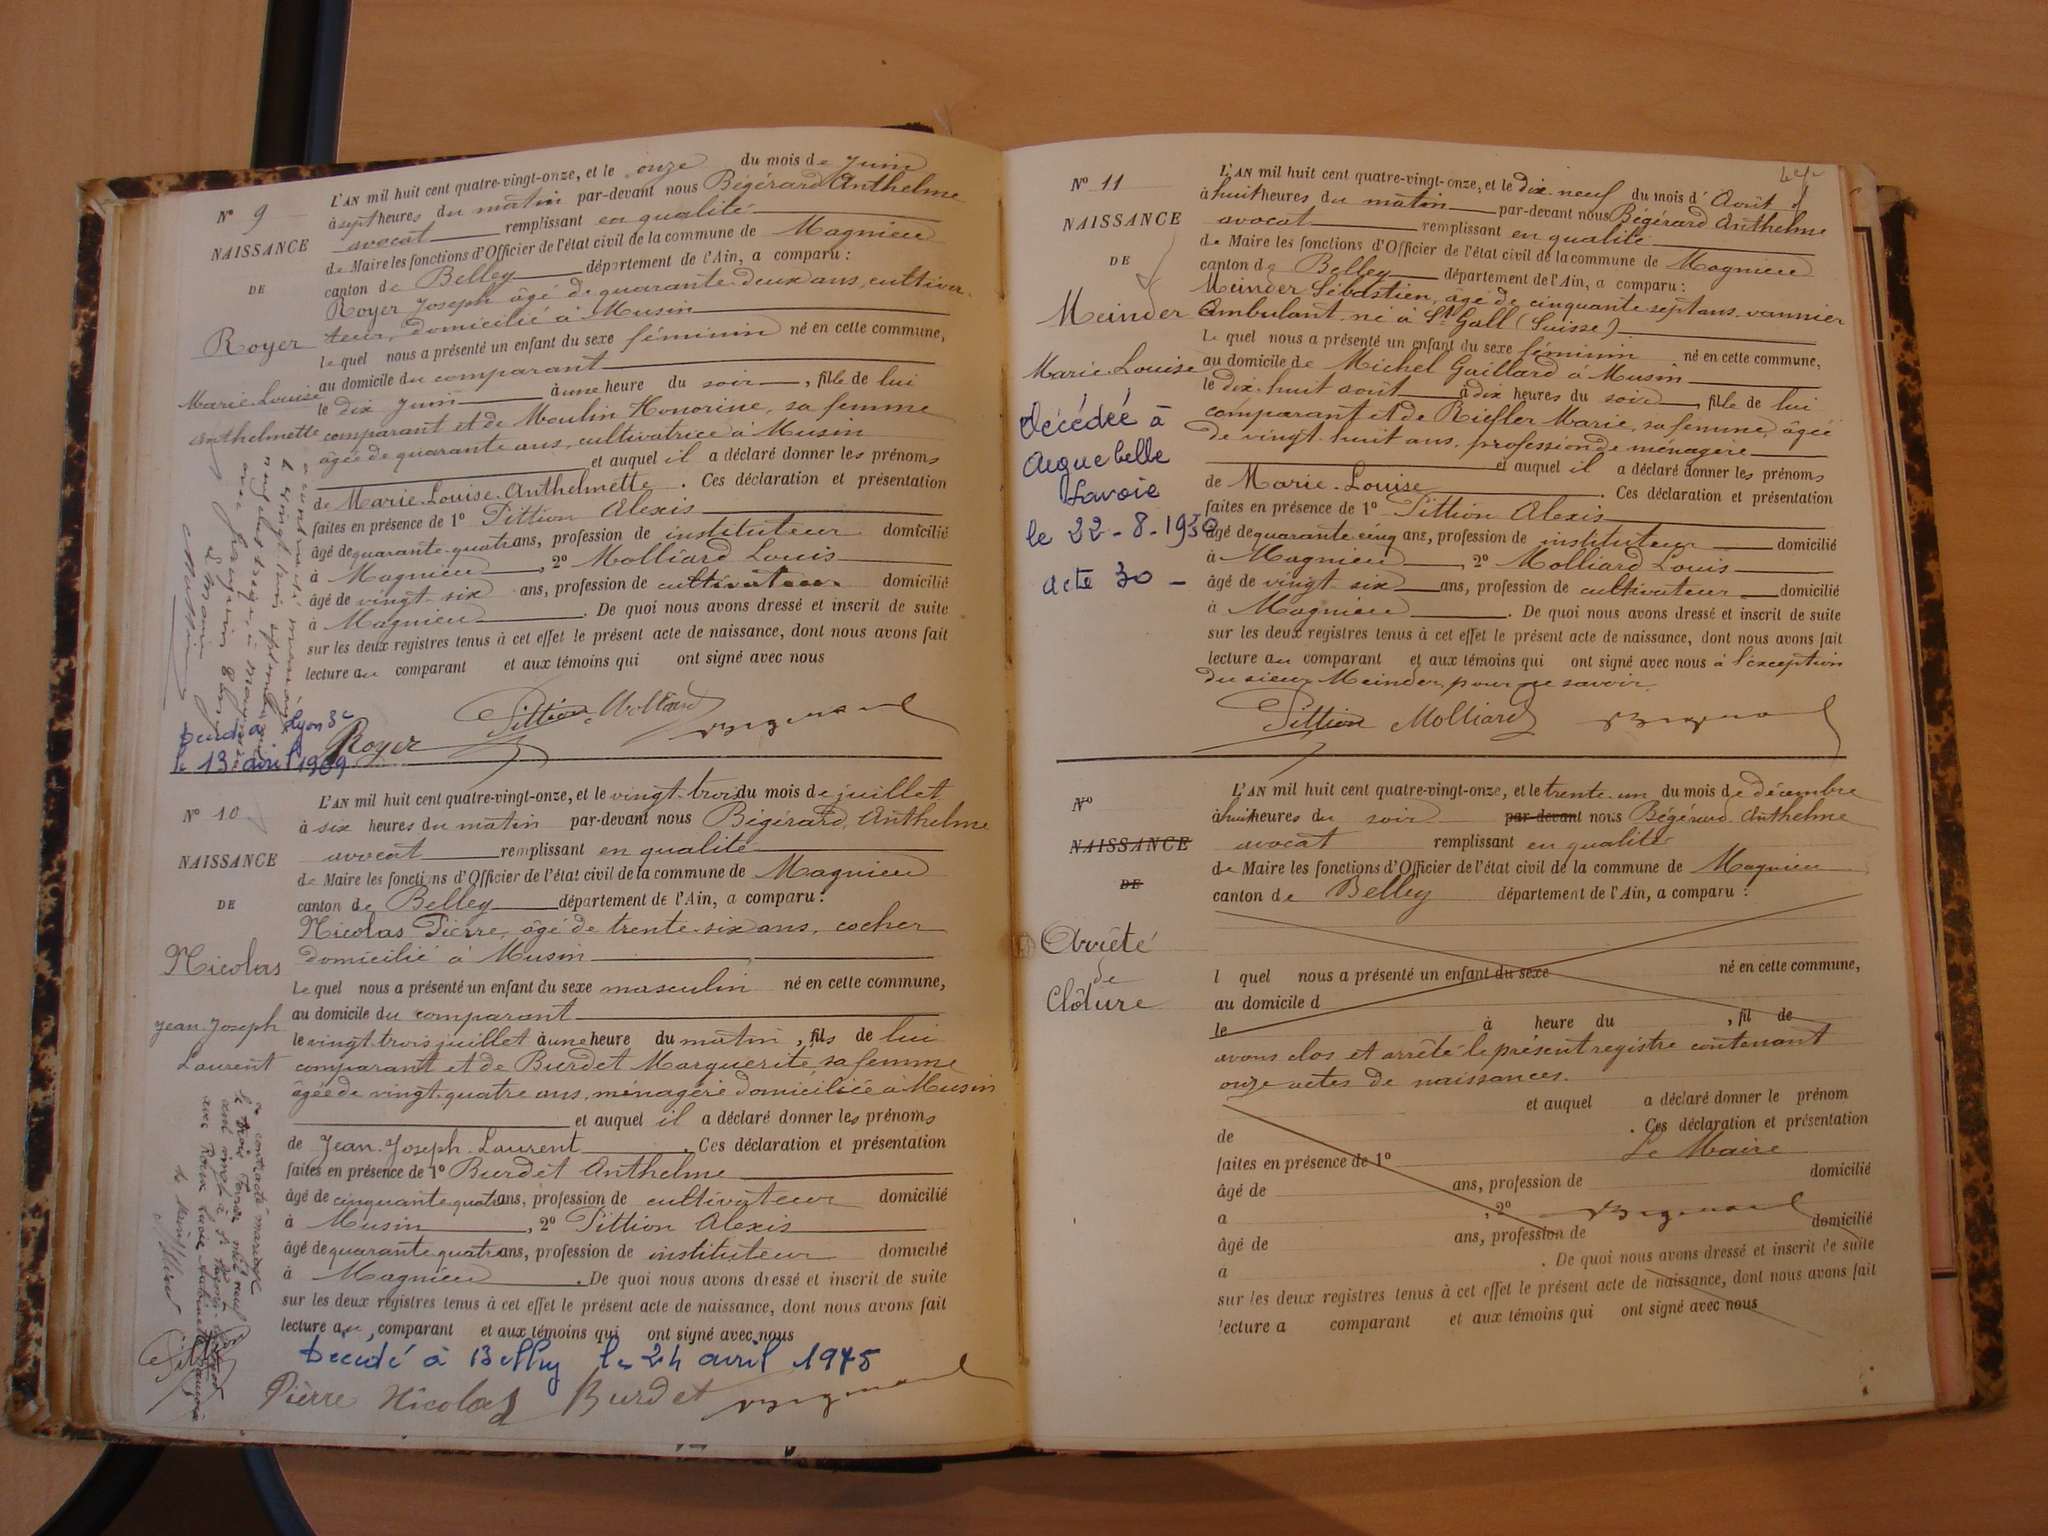 N° 9
NAISSANCE
DE
Royer
Marie-Louise
Anthelmette
L'AN mil huit cent quatre-vingt-onze, et le onze du mois de Juin
à sept heures du matin par-devant nous Bégérard Anthelme
avocat remplissant en qualité
de Maire les fonctions d'Officier de l'état civil de la commune de Magnieu
canton de Belley département de l'Ain, a comparu :
Royer Joseph âgé de quarante-deux ans, cultiva-
teur, domicilié à Musin
Le quel nous a présenté un enfant du sexe féminin né en cette commune,
au domicile du comparant
le dix Juin à une heure du soir, fille de lui
comparant et de Moulin Honorine, sa femme
âgée de quarante ans, cultivatrice à Musin
et auquel il a déclaré donner les prénoms
de Marie-Louise-Anthelmette. Ces déclaration et présentation
faites en présence de 1° Pittion Alexis
âgé de quarante-quatre ans, profession de instituteur domicilié
à Magnieu, 2° Molliard Louis
âgé de vingt-six ans, profession de cultivateur domicilié
à Magnieu. De quoi nous avons dressé et inscrit de suite
sur les deux registres tenus à cet effet le présent acte de naissance, dont nous avons fait
lecture au comparant et aux témoins qui ont signé avec nous
Royer Pittion Molliard
Lyon 3e
le 13 avril 1969
N° 10
NAISSANCE
DE
Nicolas
Jean-Joseph
Laurent
L'AN mil huit cent quatre-vingt-onze, et le vingt-trois du mois de juillet
à six heures du matin par-devant nous Bégérard, Anthelme
avocat remplissant en qualité
de Maire les fonctions d'Officier de l'état civil de la commune de Magnieu
canton de Belley département de l'Ain, a comparu :
Nicolas Pierre, âgé de trente-six ans, cocher
domicilié à Musin
Le quel nous a présenté un enfant du sexe masculin né en cette commune,
au domicile du comparant
le vingt-trois juillet à une heure du matin, fils de lui
comparant et de Burdet Marguerite, sa femme
âgée de vingt-quatre ans, ménagère domiciliée à Musin
et auquel il a déclaré donner les prénoms
de Jean-Joseph-Laurent. Ces déclaration et présentation
faites en présence de 1° Burdet Anthelme
âgé de cinquante-quatre ans, profession de cultivateur domicilié
à Musin, 2° Pittion Alexis
âgé de quarante quatre ans, profession de instituteur domicilié
à Magnieu. De quoi nous avons dressé et inscrit de suite
sur les deux registres tenus à cet effet le présent acte de naissance, dont nous avons fait
lecture au comparant et aux témoins qui ont signé avec nous
Décédé à Belley le 24 avril 1975
Pierre Nicolas Burdet
N° 11
NAISSANCE
DE
Meinder
Marie-Louise
décédée à
Aiguebelle
Savoie
acte 30
L'AN mil huit cent quatre-vingt-onze, et le dix-neuf du mois d'Août
à huit heures du matin par-devant nous Bégérard Anthelme
avocat remplissant en qualité
de Maire les fonctions d'Officier de l'état civil de la commune de Magnieu
canton de Belley département de l'Ain, a comparu :
Meinder Sébastien, âgé de cinquante-sept ans, vannier
ambulant, né à St Gall (Suisse)
Le quel nous a présenté un enfant du sexe féminin né en cette commune,
au domicile de Michel Gaillard à Musin
le dix-huit août à dix heures du soir, fille de lui
comparant et de Riefler Marie, sa femme, âgée
de vingt-huit ans, profession de ménagère
et auquel il a déclaré donner les prénoms
de Marie-Louise. Ces déclaration et présentation
faites en présence de 1° Pittion Alexis
âgé de quarante-cinq ans, profession de instituteur domicilié
à Magnieu, 2° Molliard Louis
âgé de vingt-six ans, profession de cultivateur domicilié
à Magnieu. De quoi nous avons dressé et inscrit de suite
sur les deux registres tenus à cet effet le présent acte de naissance, dont nous avons fait
lecture au comparant et aux témoins qui ont signé avec nous à l'exception
du sieur Meinder, pour ne savoir.
Pittion Molliard
N°
NAISSANCE
DE
Arrêté
de
Clôture
L'AN mil huit cent quatre-vingt-onze, et le trente-un du mois de décembre
à huit heures du soir par-devant nous Bégérard Anthelme
avocat remplissant en qualité
de Maire les fonctions d'Officier de l'état civil de la commune de Magnieu
canton de Belley département de l'Ain, a comparu :
l quel nous a présenté un enfant du sexe né en cette commune,
au domicile d
le à heure du , fil de
avons clos et arrêté le présent registre contenant
onze actes de naissances.
et auquel a déclaré donner le prénom
de . Ces déclaration et présentation
Le Maire
faites en présence de 1°
âgé de ans, profession de domicilié
à , 2°
âgé de ans, profession de domicilié
à . De quoi nous avons dressé et inscrit de suite
sur les deux registres tenus à cet effet le présent acte de naissance, dont nous avons fait
lecture a comparant et aux témoins qui ont signé avec nous